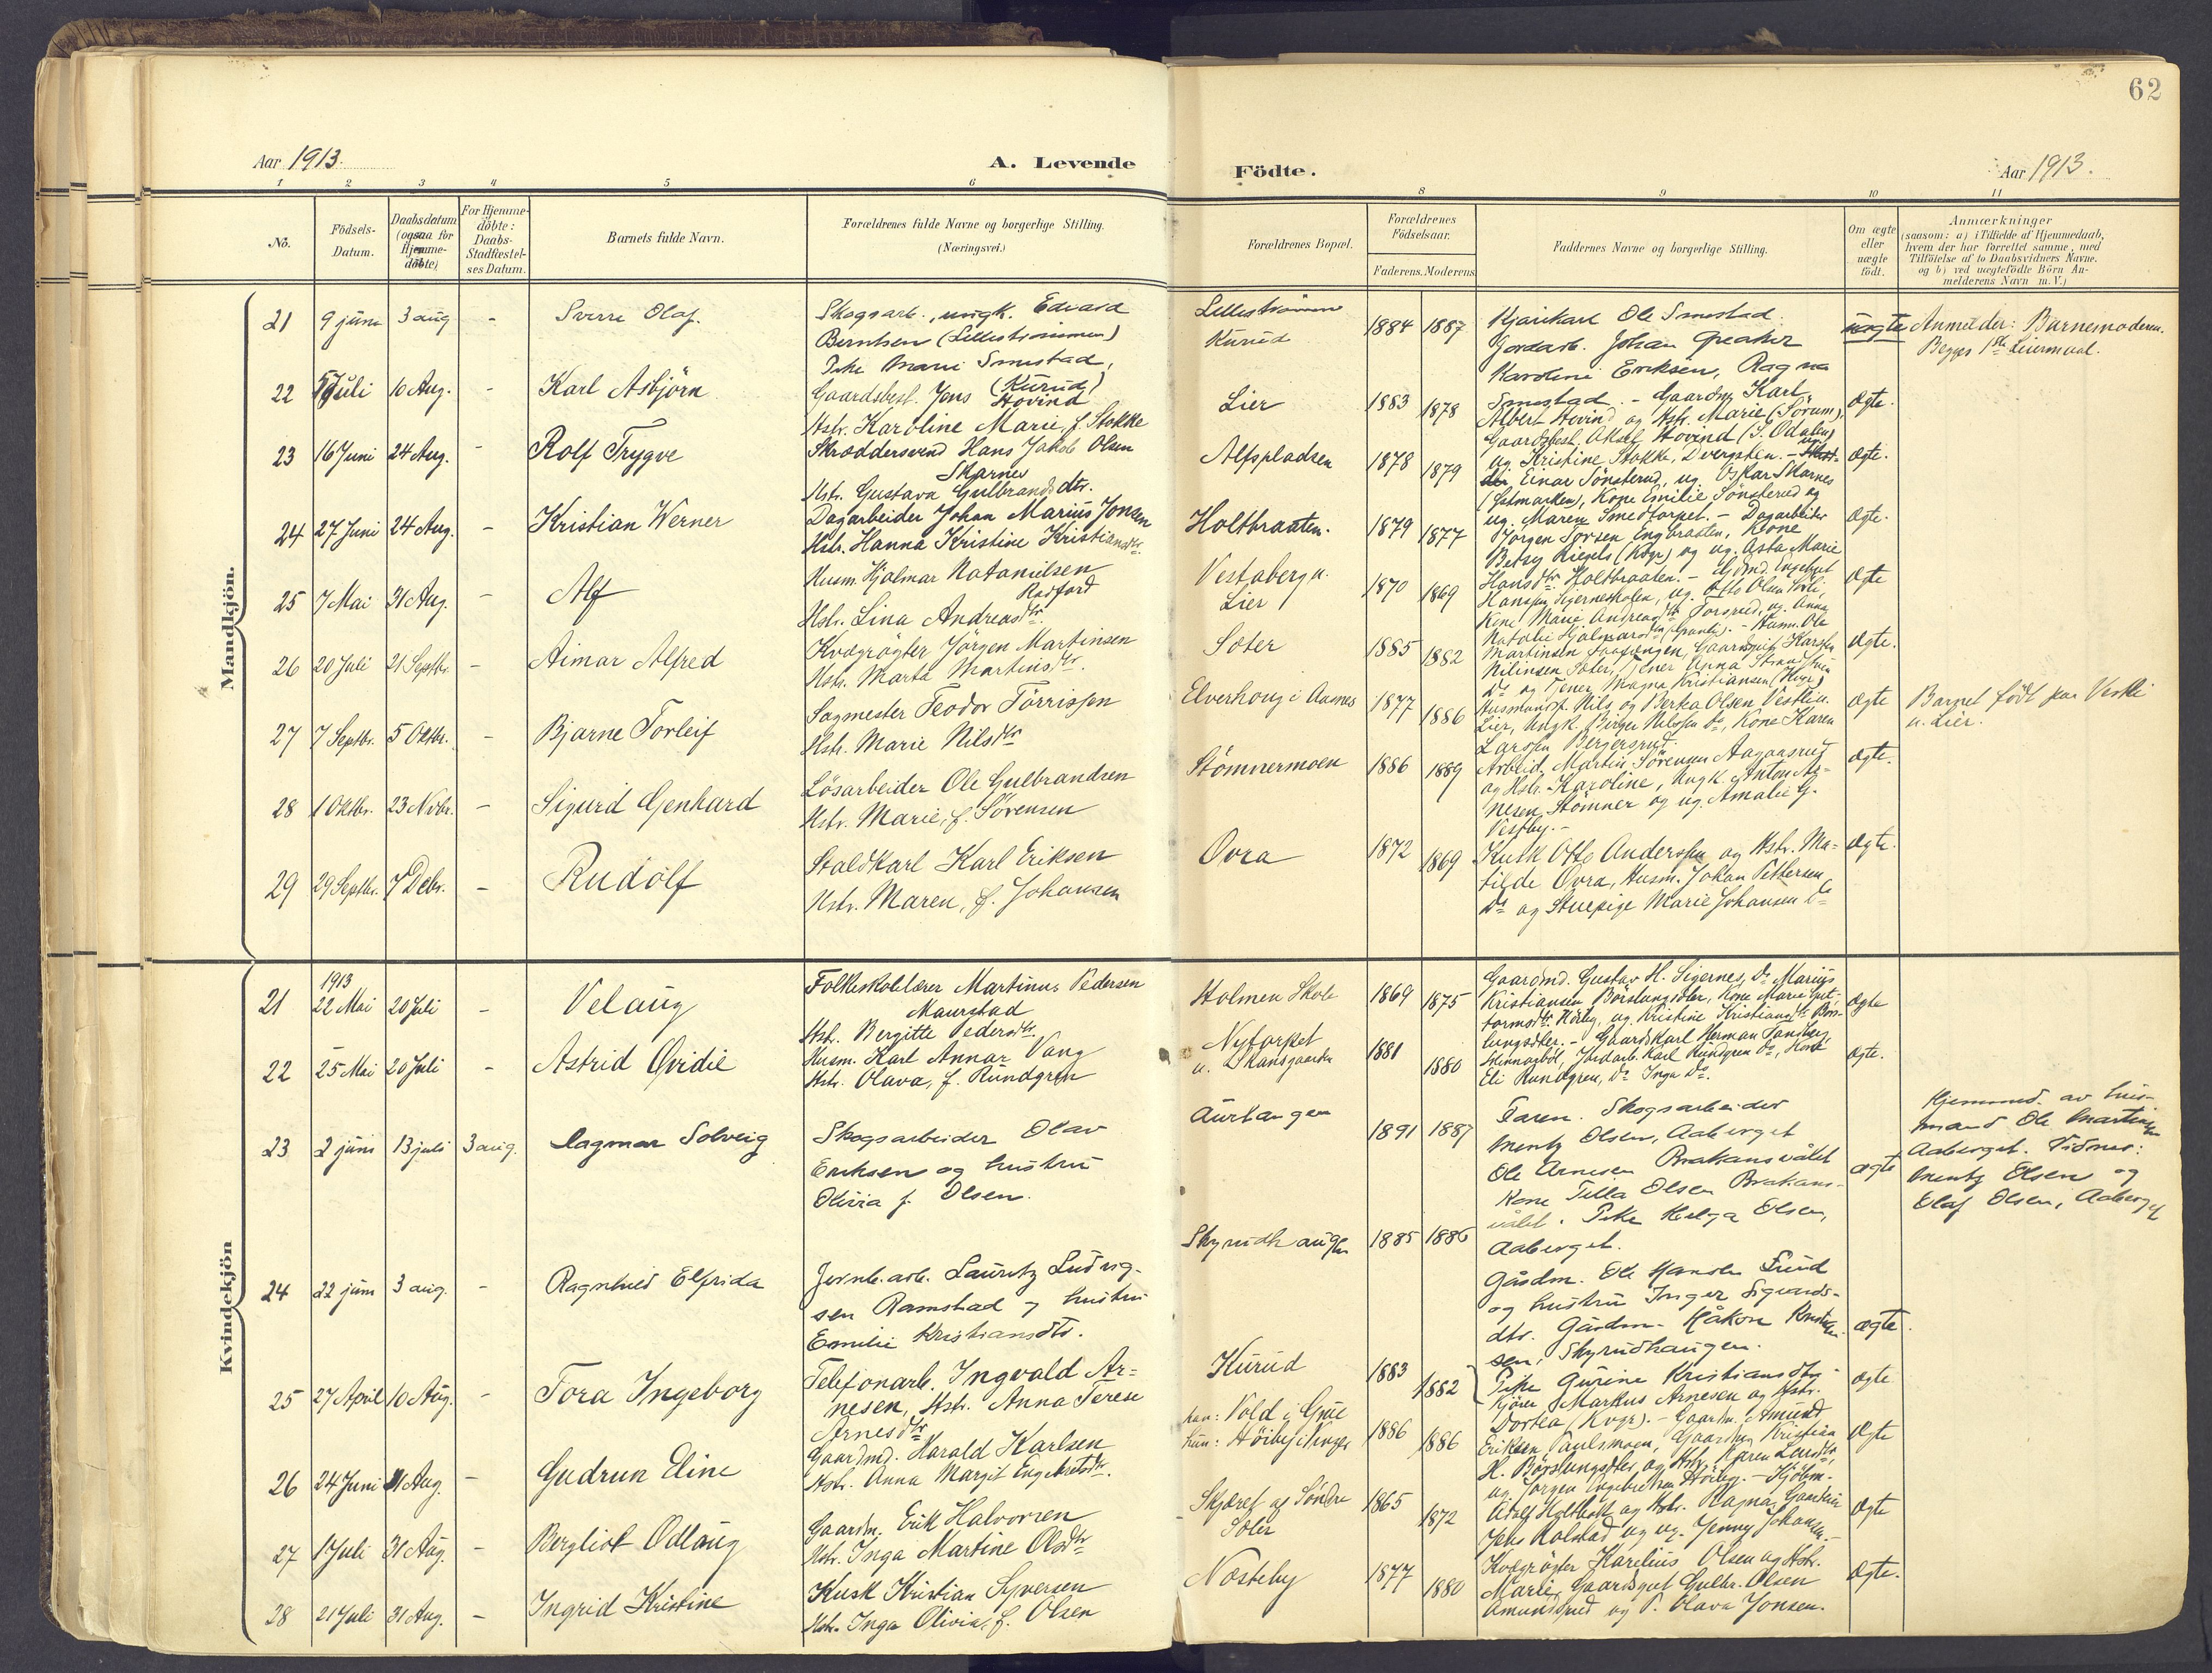 62
Aar 1913.
A. Levende
Födte.
Aar 1913.
1 2 3 4 5 6 8 9 10 11
No.
Födsels-
Datum.
Daabsdatum
(ogsaa for
Hjemme-
döbte)
For Hjemme-
döbte:
Daabs-
Stadfæstel-
ses Datum.
Barnets fulde Navn.
Forældrenes fulde Navne og borgerlige Stilling.
(Næringsvei.)
Forældrenes Bopæl.
Forældrenes
Födselsaar.
Faderens. Moderens
Faddernes Navne og borgerlige Stilling.
Om ægte
eller
uægte
födt.
Anmærkninger
(saasom: a) i Tilfælde af Hjemmedaab,
hvem der har forrettet samme, med
Tilföielse af to Daabsvidners Navne.
og b) ved uægtefödte Börn An-
melderens Navn m. V.)
Mandkjön.
21 9 juni 3 aug - Sverre Olaf.
Skogsarb., ungk. Edvard
Berntsen (Lillestrømmen)
Pike Marie Smestad,
(Kurud)
Lillestrømmen
Kurud
1884 1887
Kjørekarl Ole Smestad.
Jordarb. Johan Greaker
Karoline Eriksen, Ragna
Smestad. -
uægte
Anmelder: Barnemoderen.
Begges 1ste Leiermaal.
22 5 Juli 10 Aug. - Karl Asbjörn
Gaardsbest. Jens Hovind
Hstr. Karoline Marie, f. Stokke
Lier
1883 1878
Gaardm. Karl
Albert Hovind og Hstr. Marie (Sörum),
Gaardsbest. Aksel Hovind (S. Odalen)
og Kristine Stokke, Dvergsten. -
Ægte.
23 16 Juni 24 Aug. - Rolf Trygve
Skræddersvend Hans Jakob Olsen
Skarnes
Hstr. Gustava Gulbrandsdtr.
Alfspladsen
1878 1879
Einar Sönsterud, ug. Oskar Skarnes
(Østmarken), Kone Emilie Sönsterud og
ug. Maren Smedtorpet. -
Ægte.
24 27 Juni 24 Aug. - Kristian Werner
Dagarbeider Johan Marius Jonsen
Hstr. Hanna Kristine Kristiansdtr.
Holtbraaten.
1879 1877
Dagarbeider
Jörgen Enbraaten, Kone
Betsy Riegels (Kvgr) og ug. Asta Marie
Hansdtr Holtbraaten. -
Ægte.
25 7 Mai 31 Aug. - Alf
Husm. Hjalmar Natanielsen
Rasford
Hstr. Lina Andreasdtr.
Vestaberg u.
Lier
1870 1869
Hansen Sigerneskolen, ug. Otto Olsen
Kone Marie Andreasdtr Torsrud, ug. Anna
Natalie Hjalmarsdtr
Ægte
26 20 Juli 21 Septbr. - Aimar Alfred
Kvægrögter Jörgen Martinsen
Hstr. Marta Martinsdtr.
Soter
1885 1882
Husm. Ole
Martinsen Gaardsgut Karsten
Nilsensen Soter, Tjener Anna
do og Tjener Magna Kristiansen (Kvgr)
Ægte.
27 7 Septbr. 5 Oktbr. - Bjarne Torleif
Sagmester Teodor Törrissen
Hstr. Marie Nilsdtr
Elverhoug i Aasnes
1877 1886
Husmandsf. Nils og Berta Olsen Vestli u.
Lier, Ungk. Birger Nilssen do, Kone Karen
Larssen Bergersrud.
Ægte
Barnet födt paa Vestli
u. Lier.
28 1 Oktbr. 23 Novbr. - Sigurd Genhard
Lösarbeider Ole Gulbrandsen
Hstr. Marie, f. Sörensen
Stömnermoen
1886 1889
Arbeid. Martin Sörensen Aagaasrud
og Hstr. Karoline, Ungk. Anton Ar-
nesen Stömner og ug. Amalie G.
Vestby. -
Ægte.
29 29 Septbr. 7 Debr. - Rudolf
Staldkarl Karl Eriksen
Hstr. Maren, f. Johansen
Ovra
1872 1869
Kusk Otto Anderssen og Hstr. Ma-
tilde Ovra, Husm. Johan Pettersen
do og Stuepige Marie Johansen do
Ægte.
Kvindekjön
1913
21 22 Mai 20 Juli - Velaug
Folkeskolelærer Martinus Pedersen
Maurstad
Hst. Bergitte Pedersdtr.
Holmen Skole
1869 1875
Gaardmd. Gustav H. Sigernes, do Marius
Kristiansen Börslungsdler, Kone Marie Gut-
tormsdtr. Höiby, ug. Kristine Kristiansdtr Börs-
lungsdler. -
Ægte
22 25 Mai 20 Juli - Astrid Ovidie
Husm. Karl Annar Vang
Hstr. Olava, f. Rundgren
Nytorpet
u. Skansgaarden
1881 1880
Gaardskarl Herman Sandberg
Skinnarböl, Jordarb. Karl Rundgren do, Kone
Eli Rundgren, do Inga do.
Ægte.
23 2 juni 13 juli 3 aug. Dagmar Solveig
Skogsarbeider Olav
Eriksen og hustru
Olivia f. Olsen.
Aurtangen
1891 1887
Faren. Skogsarbeider
Mentz Olsen, Aaberget
Ole Arnesen Brakansvålet
Kone Tilla Olsen Brakans-
vålet. Pike Helga Olsen,
Aaberget.
ægte
Hjemmed. av hus-
mand Ole Martinsen
Aaberget. Vidner:
Mentz Olsen og
Olaf Olsen, Aaberget
24 22 juni 3 aug. - Ragnhild Elfrida
Jernb.arb. Lauritz Ludvig-
sen Ramstad og hustru
Emilie Kristiansdtr.
Skyrudhaugen
1885 1886
Gårdm. Ole Hansen Lund
og hustru Inger Sigvards-
dtr. Gårdm. Håkon Kristian-
sen, Skyrudhaugen.
Pike Gurine Kristiansdtr
ægte.
25 27 April 10 Aug. - Tora Ingeborg
Telefonarb. Ingvald Ar-
nesen, Hstr. Anna Terese
Arnesdtr
Kurud
1883 1882
Kjörer Markus Arnesen og Hstr.
Dortea (Kvgr). -
ægte
26 24 Juni 31 Aug. - Gudrun Eline
Gaardmd. Harald Karlsen
Hstr. Anna Margit Engebretsdtr.
han: Vold i Grue
hun: Höiby i Vinger
1886 1886
Gaardm. Amund
Eriksen Paulsmoen, Gaardm. Kristian
H. Börslungsdler og Hstr. Karen Larsdtr,
ug. Jörgen Engebretsen Höiby. -
Ægte
27 1 Juli 31 Aug. - Bergliot Odlaug
Gaardm. Erik Halvorsen
Hstr. Inga Martine Olsdtr
Skjæret af Söndre
Soler
1865 1872
Kjöbm.
Adolf Holtbakk og Hstr. Ragna, Gaardeier
Jens Rolstad og ug. Jenny Johansen. -
Ægte
28 21 Juli 31 Aug. - Ingrid Kristine
Kusk Kristian Syversen
Hstr. Inga Olivia, f. Olsen
Nosteby
1877 1880
Kvægrögter Karelius Olsen og Hstr.
Marie, Gaardsgut Gulbr. Olsen
Amundsrud og P. Olava Jonsen.
Ægte.